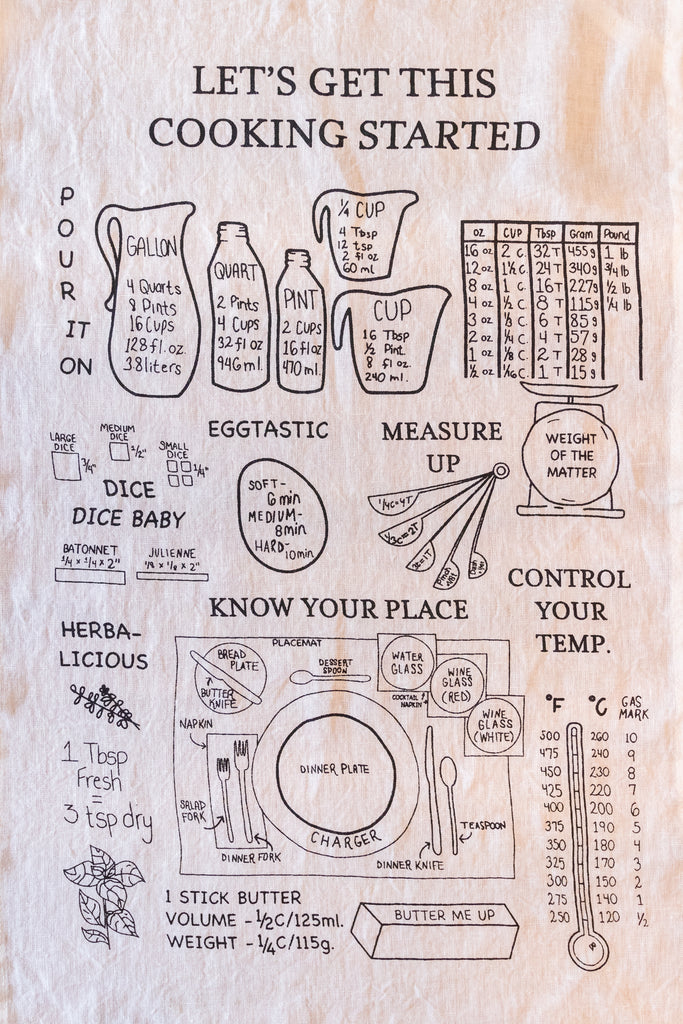 LET'S GET THIS
COOKING STARTED
POUR IT ON
GALLON
4 Quarts
8 Pints
16 Cups
128 fl. oz.
3.8 liters
QUART
2 Pints
4 Cups
32 fl oz
946 ml.
PINT
2 Cups
16 fl oz
470 ml.
¼ CUP
4 Tbsp
12 tsp
2 fl oz
60 ml
CUP
16 Tbsp
½ Pint
8 fl oz.
240 ml.
oz CUP Tbsp Gram Pound
16 oz 2 c. 32 T 455g 1 lb
12 oz 1½ c. 24 T 340g ¾ lb
8 oz 1 c. 16 T 227g ½ lb
4 oz ½ c. 8 T 115g ¼ lb
3 oz ⅓ c. 6 T 85g
2 oz ¼ c. 4 T 57g
1 oz ⅛ c. 2 T 28g
½ oz 1/16 c. 1 T 15g
LARGE
DICE
¾"
MEDIUM
DICE
½"
SMALL
DICE
¼"
DICE
DICE BABY
BATONNET
¼ x ¼ x 2"
JULIENNE
⅛ x ⅛ x 2"
EGGTASTIC
SOFT-
6 min
MEDIUM-
8 min
HARD-
10 min
MEASURE
UP
¼C=4T
⅛C=2T
Pinch
Dash
WEIGHT
OF THE
MATTER
HERBA-
LICIOUS
1 Tbsp
Fresh
=
3 tsp dry
KNOW YOUR PLACE
PLACEMAT
BREAD
PLATE
BUTTER
KNIFE
DESSERT
SPOON
WATER
GLASS
COCKTAIL
NAPKIN
WINE
GLASS
(RED)
WINE
GLASS
(WHITE)
NAPKIN
SALAD
FORK
DINNER FORK
DINNER PLATE
CHARGER
DINNER KNIFE
TEASPOON
CONTROL
YOUR
TEMP.
°F °C GAS MARK
500 260 10
475 240 9
450 230 8
425 220 7
400 200 6
375 190 5
350 180 4
325 170 3
300 150 2
275 140 1
250 120 ½
1 STICK BUTTER
VOLUME - ½C/125ml.
WEIGHT - ¼C/115g.
BUTTER ME UP